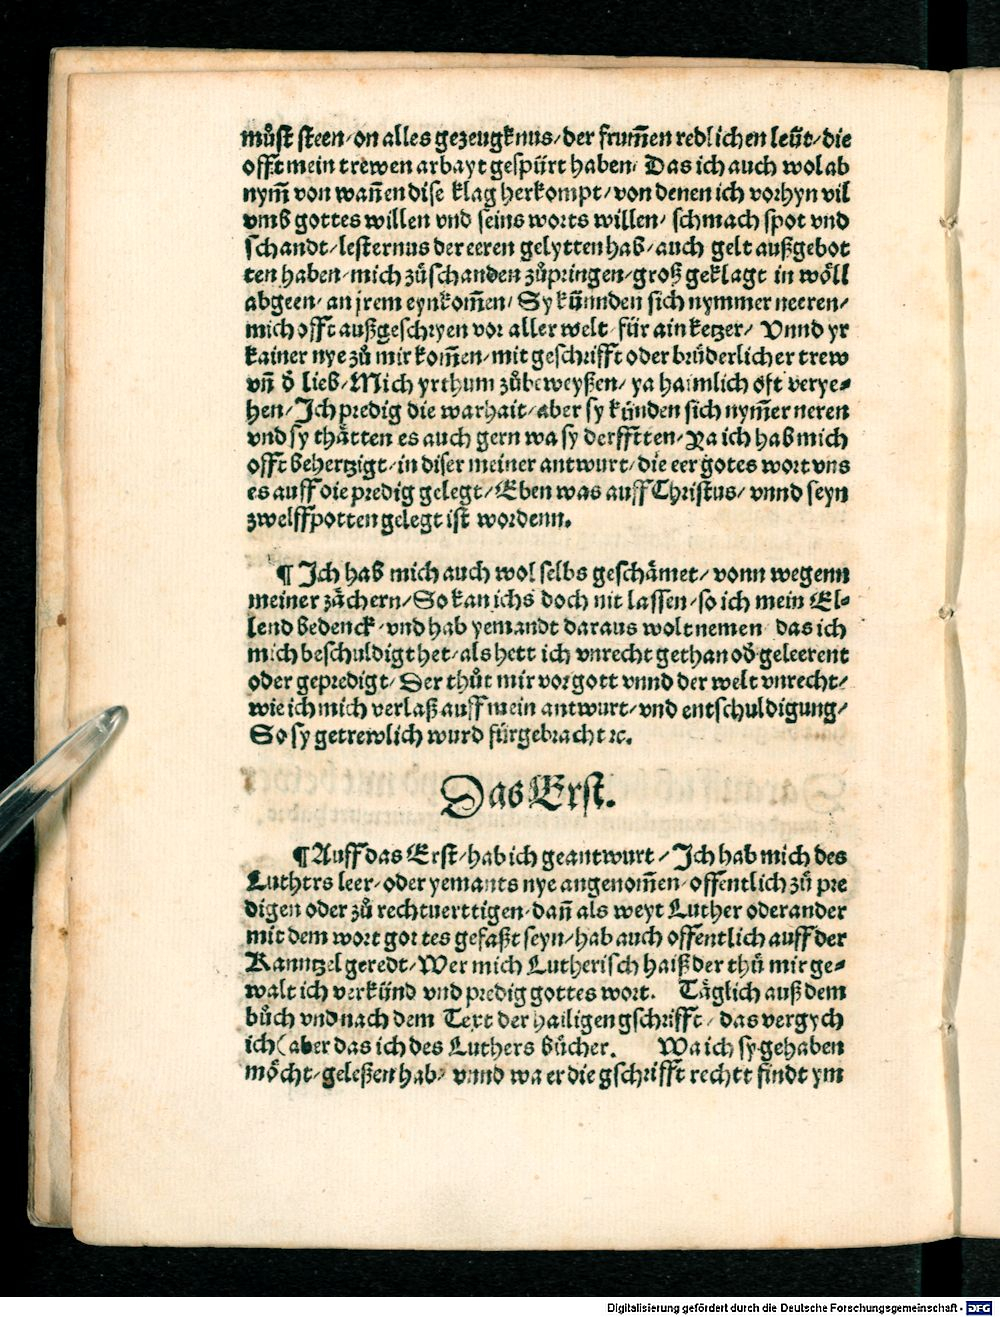 muͦſt ſteen/ on alles gezeugknus/ der frum̃en redlichen leüt/ die
offt mein trewen arbayt geſpürt haben/ Das ich auch wol ab
nym̃ von wañen diſe klag herkompt/ von denen ich vorhyn vil
vmb gottes willen vnd ſeins worts willen/ ſchmach ſpot vnd
ſchandt/ leſternus der eeren gelytten hab/ auch gelt außgebot
ten haben/ mich zuͦſchanden zuͦpringen/ groß geklagt in woͤll
abgeen/ an jrem eynkom̃en/ Sy künnden ſich nymmer neeren/
mich offt außgeſchryen vor aller welt/ für ain ketzer/ Vnnd yr
kainer nye zuͦ mir kom̃en/ mit geſchrifft oder bruͤderlicher trew
vñ d̕ lieb/ Mich yrthum zuͦbeweyßen/ ya haimlich oft verye⸗
hen/ Ich predig die warhait/ aber ſy künden ſich nym̃er neren
vnd ſy thaͤtten es auch gern wa ſy derfftten/ Ya ich hab mich
offt behertzigt/ in diſer meiner antwurt/ die eer gotes wort vns
es auff oie predig gelegt/ Eben was auff Chriſtus/ vnnd ſeyn
zwelffpotten gelegt iſt wordenn.
¶ Ich hab mich auch wol ſelbs geſchaͤmet/ vonn wegenn
meiner zaͤchern/ So kan ichs doch nit laſſen/ ſo ich mein El⸗
lend bedenck/ vnd hab yemandt daraus wolt nemen das ich
mich beſchuldigt het/ als hett ich vnrecht gethan od̕ geleerent
oder gepredigt/ Der thuͦt mir vor gott vnnd der welt vnrecht/
wie ich mich verlaß auff mein antwurt/ vnd entſchuldigung/
So ſy getrewlich wurd fürgebracht ꝛc.
Das Erſt.
¶ Auff das Erſt/ hab ich geantwurt/ Ich hab mich des
Luthers leer/ oder yemants nye angenom̃en/ offentlich zuͦ pre
digen oder zuͦ rechtuerttigen/ dañ als weyt Luther oder ander
mit dem wort gottes gefaßt ſeyn/ hab auch offentlich auff der
Kanntzel geredt/ Wer mich Lutheriſch haiß der thuͦ mir ge⸗
walt ich verkünd vnd predig gottes wort. Taͤglich auß dem
buͦch vnd nach dem Text der hailigen gſchrifft/ das vergych
ich (aber das ich des Luthers buͤcher. Wa ich ſy gehaben
moͤcht/ geleßen hab/ vnnd wa er die gſchrifft rechtt findt ym
Digitalisierung gefördert durch die Deutsche Forschungsgemeinschaft - DFG